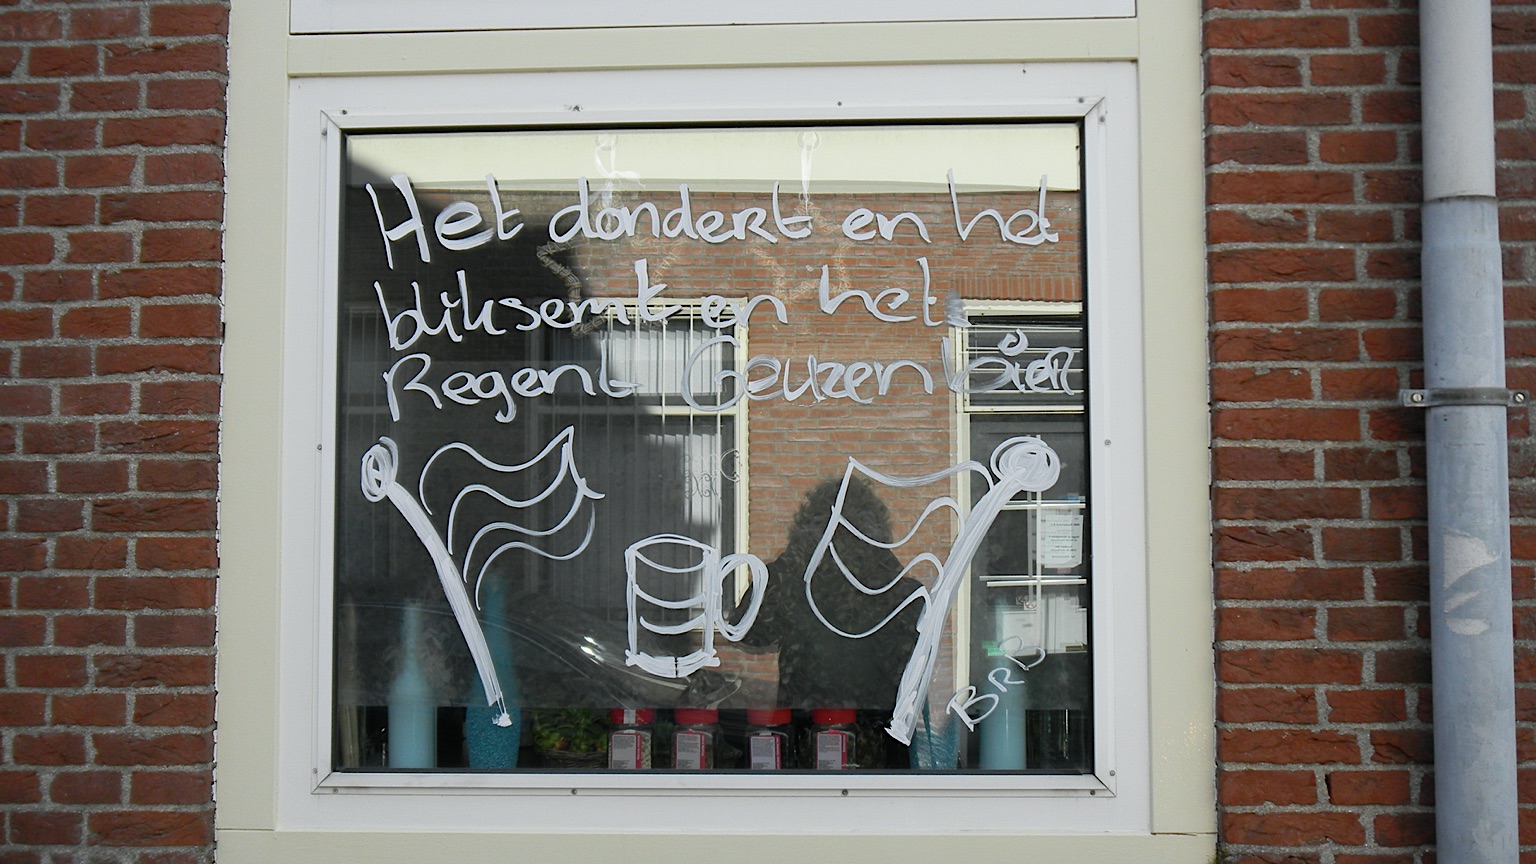 Het dondert en het
bliksemt en het
Regent Geuzen bier
BRR